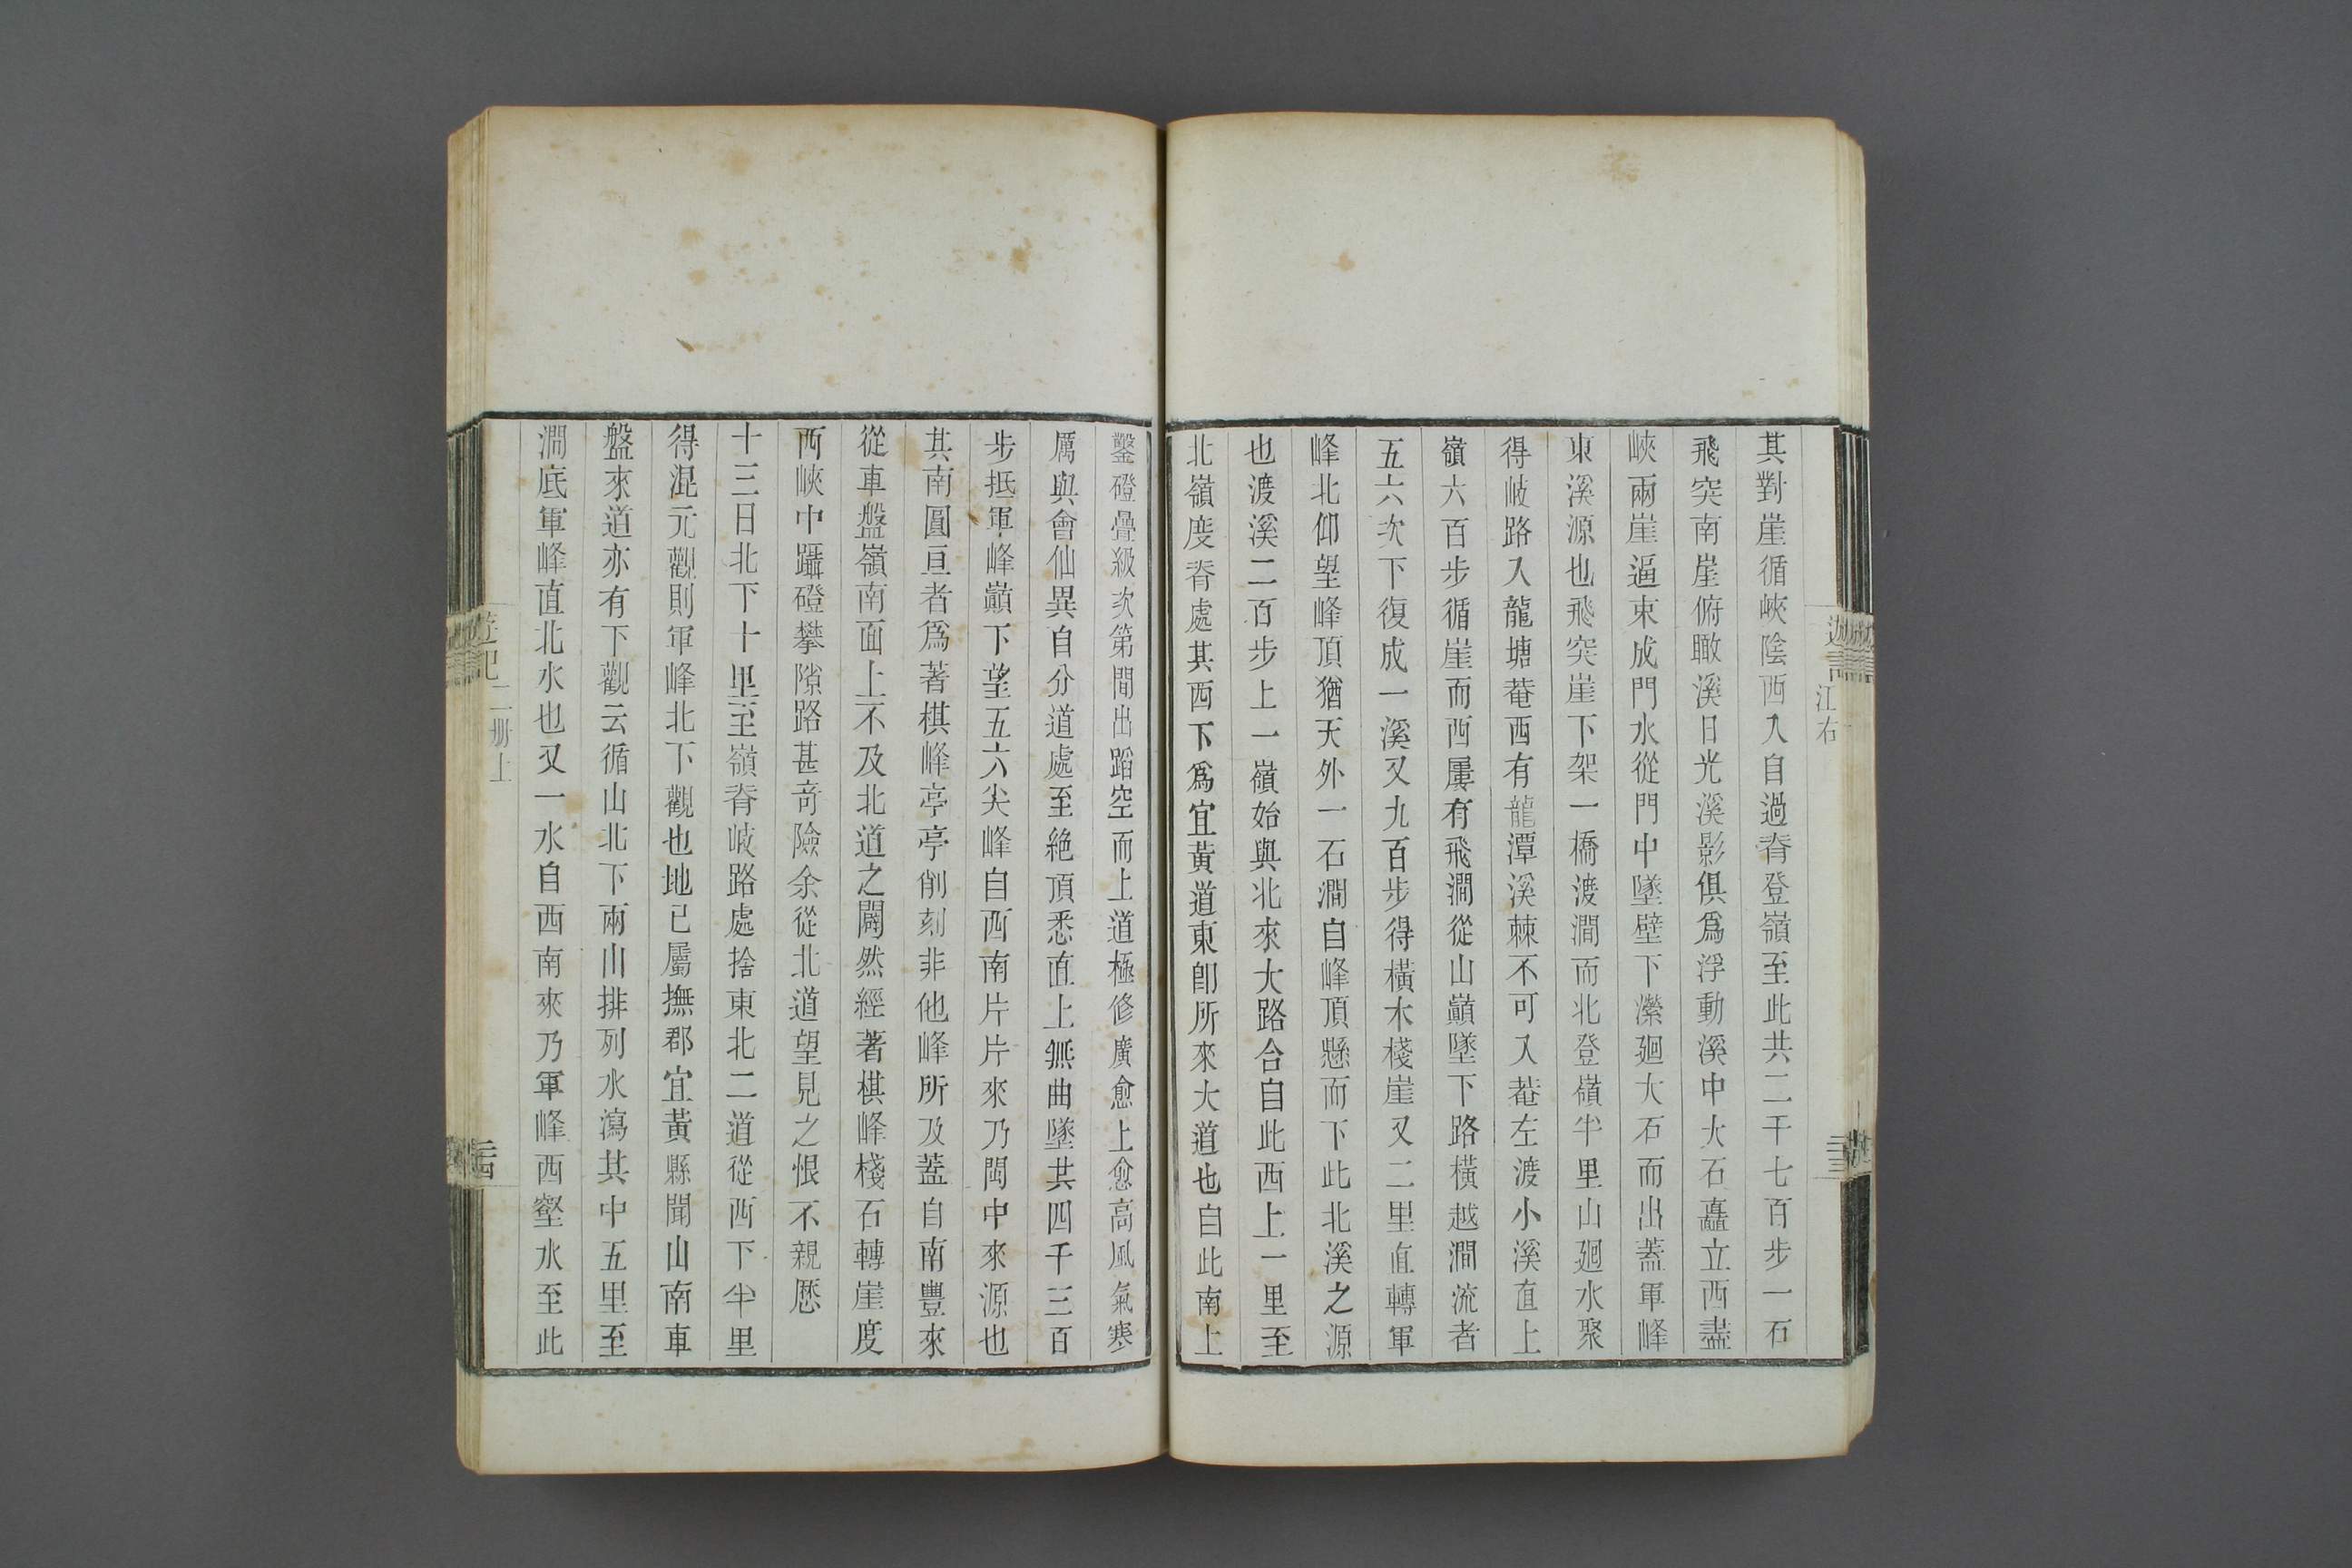 其對崖循峽陰西入自過脊登嶺至此共二千七百步一石
飛突南崖俯瞰溪日光溪影俱爲浮動溪中大石矗立西盡
峽兩崖逼束成門水從門中墜壁下瀠廻大石而出蓋軍峰
東溪源也飛突崖下架一橋渡澗而北登嶺半里山廻水聚
得岐路入龍塘菴西有龍潭溪棘不可入菴左渡小溪直上
嶺六百步循崖而西屢有飛澗從山巔墜下路橫越澗流者
五六次下復成一溪又九百步得橫木棧崖又二里直轉軍
峰北仰望峰頂猶天外一石澗自峰頂懸而下此北溪之源
也渡溪二百步上一嶺始與北來大路合自此西上一里至
北嶺度脊處其西下爲宜黃道東卽所來大道也自此南上
鑿磴疊級次第間出蹈空而上道極修廣愈上愈高風氣寒
厲與會仙異自分道處至絶頂悉直上無曲墜共四千三百
步抵軍峰巔下望五六尖峰自西南片片來乃閩中來源也
其南圓亘者爲著棋峰亭亭削刻非他峰所及蓋自南豐來
從車盤嶺南面上不及北道之闢然經著棋峰棧石轉崖度
西峽中躡磴攀隙路甚奇險余從北道望見之恨不親歷
十三日北下十里至嶺脊岐路處捨東北二道從西下半里
得混元觀則軍峰北下觀也地已屬撫郡宜黃縣聞山南車
盤來道亦有下觀云循山北下兩山排列水瀉其中五里至
澗底軍峰直北水也又一水自西南來乃軍峰西壑水至此
遊記
二册上
江右